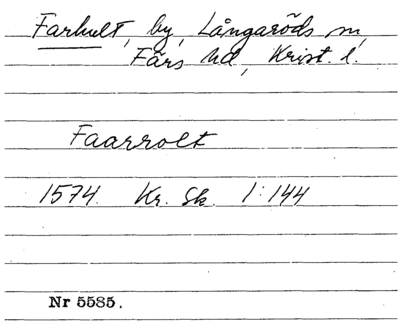 Farhult, by, Långaröds sn,
Färs hd, Krist. l.
Faarrolt
1574. Kr. Sk. 1:144
Nr 5585.